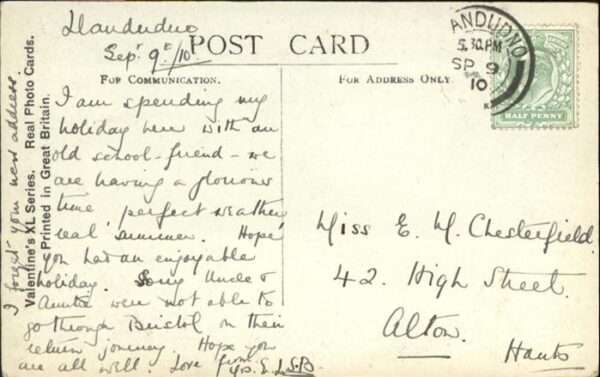 Llandudno
Sepr 9th/10.
POST CARD
FOR COMMUNICATION.
FOR ADDRESS ONLY
I am spending my
holiday here with an
old school-friend - we
are having a glorious
time, perfect weather
real summer. Hope
you had an enjoyable
holiday. Sorry Uncle &
Auntie were not able to
go through Bristol on their
return journey. Hope you
are all well. Love from
Yrs. E.L.S.B.
I forget your new address.
Valentine's XL Series. Real Photo Cards.
Printed in Great Britain.
ANDUDNO
5.30PM
SP 9
10
HALF PENNY
Miss E. M. Chesterfield.
42. High Street.
Alton.
Hants